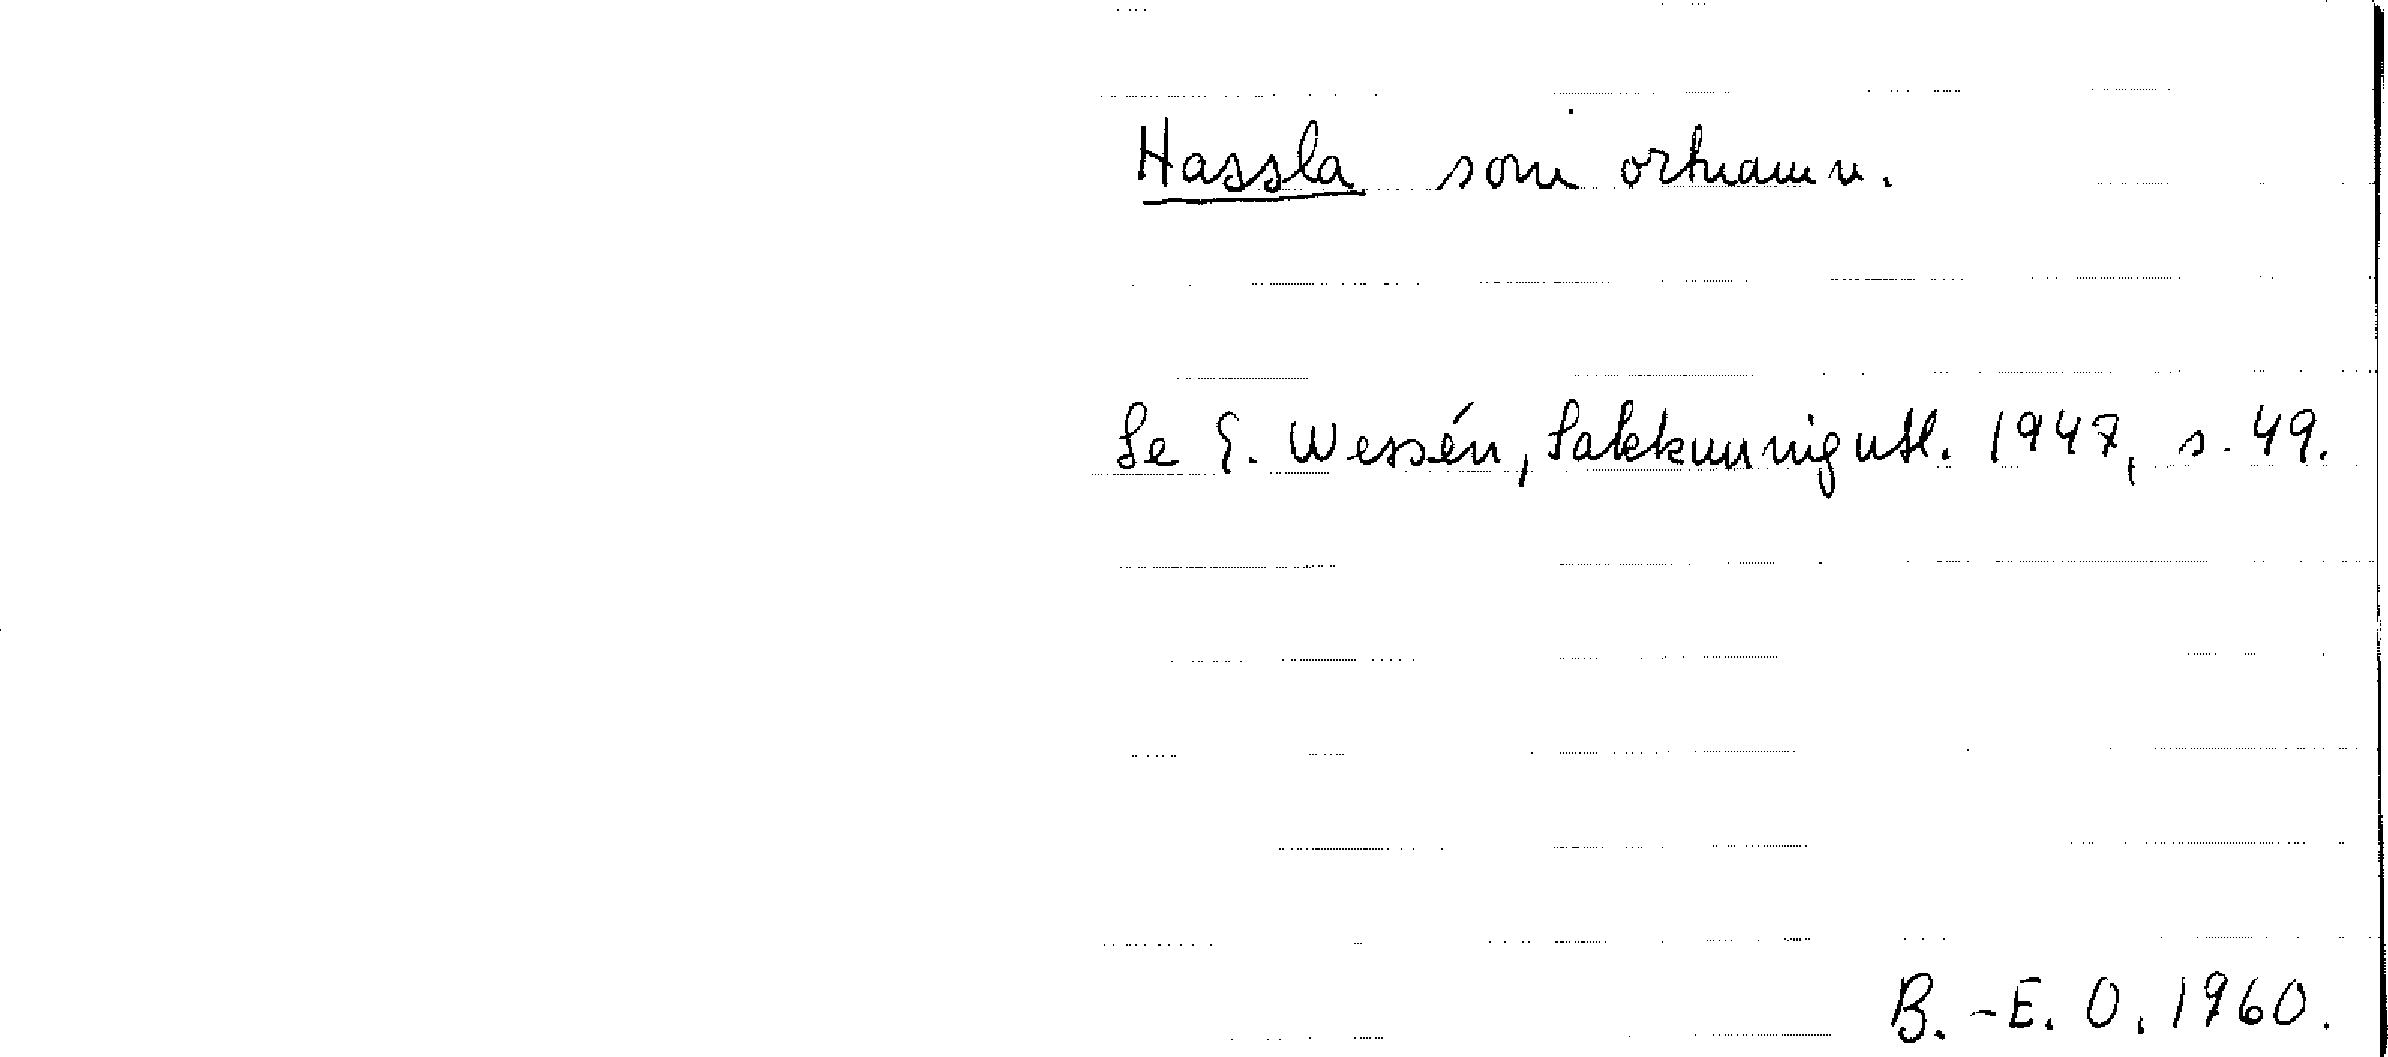 Hassla som ortnamn.
Se E. Wessén, Sakkunnigutl. 1947, s. 49.
B.-E. O. 1960.